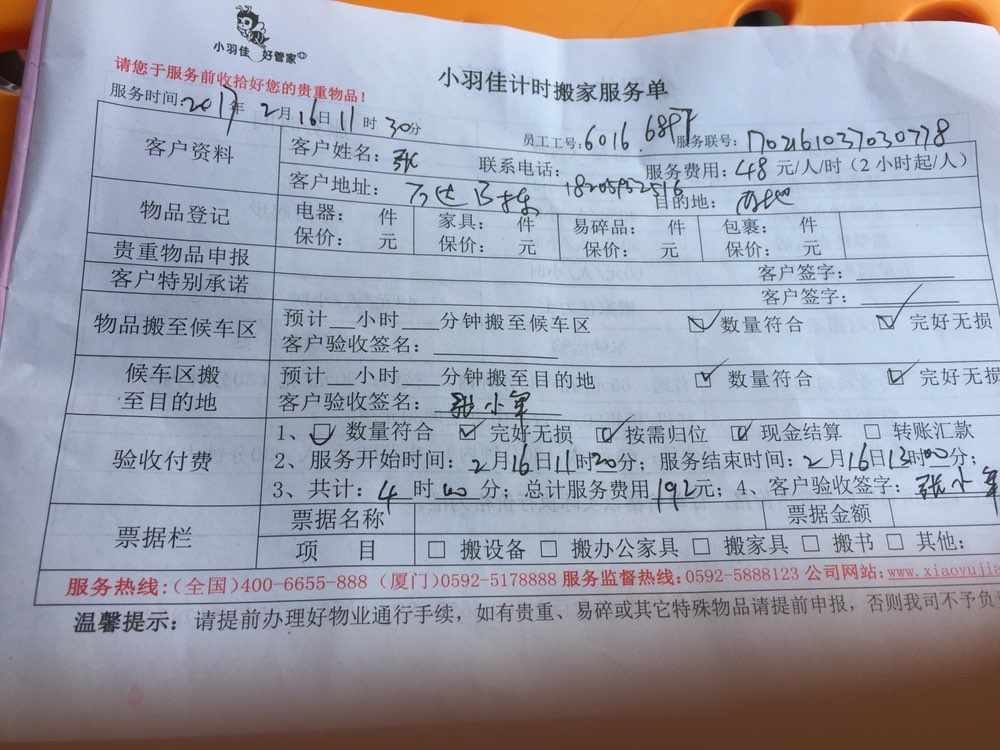 小羽佳 好管家
小羽佳计时搬家服务单
请您于服务前收拾好您的贵重物品！
服务时间：2017年 2月16日11时30分 员工工号：6016. 服务联号：1702161037030778
客户资料 客户姓名：张 联系电话：18205952516 服务费用：48元/人/时（2小时起/人）
客户地址：万达 目的地：
物品登记 电器： 件 家具： 件 易碎品： 件 包裹： 件
保价： 元 保价： 元 保价： 元 保价： 元
贵重物品申报 客户签字：
客户特别承诺 客户签字：
物品搬至候车区 预计__小时___分钟搬至候车区 ☑ 数量符合 ☑ 完好无损
客户验收签名：
候车区搬至目的地 预计__小时___分钟搬至目的地 ☑ 数量符合 ☑ 完好无损
客户验收签名：张小军
验收付费 1、☑ 数量符合 ☑ 完好无损 ☑ 按需归位 ☑ 现金结算 □ 转账汇款
2、服务开始时间：2月16日11时20分；服务结束时间：2月16日13时00分；
3、共计：4时00分；总计服务费用192元；4、客户验收签字：张小军
票据栏 票据名称 票据金额
项 目 □ 搬设备 □ 搬办公家具 □ 搬家具 □ 搬书 □ 其他：
服务热线：（全国）400-6655-888（厦门）0592-5178888 服务监督热线：0592-5888123 公司网站：www.xiaoyujia
温馨提示：请提前办理好物业通行手续，如有贵重、易碎或其它特殊物品请提前申报，否则我司不予负